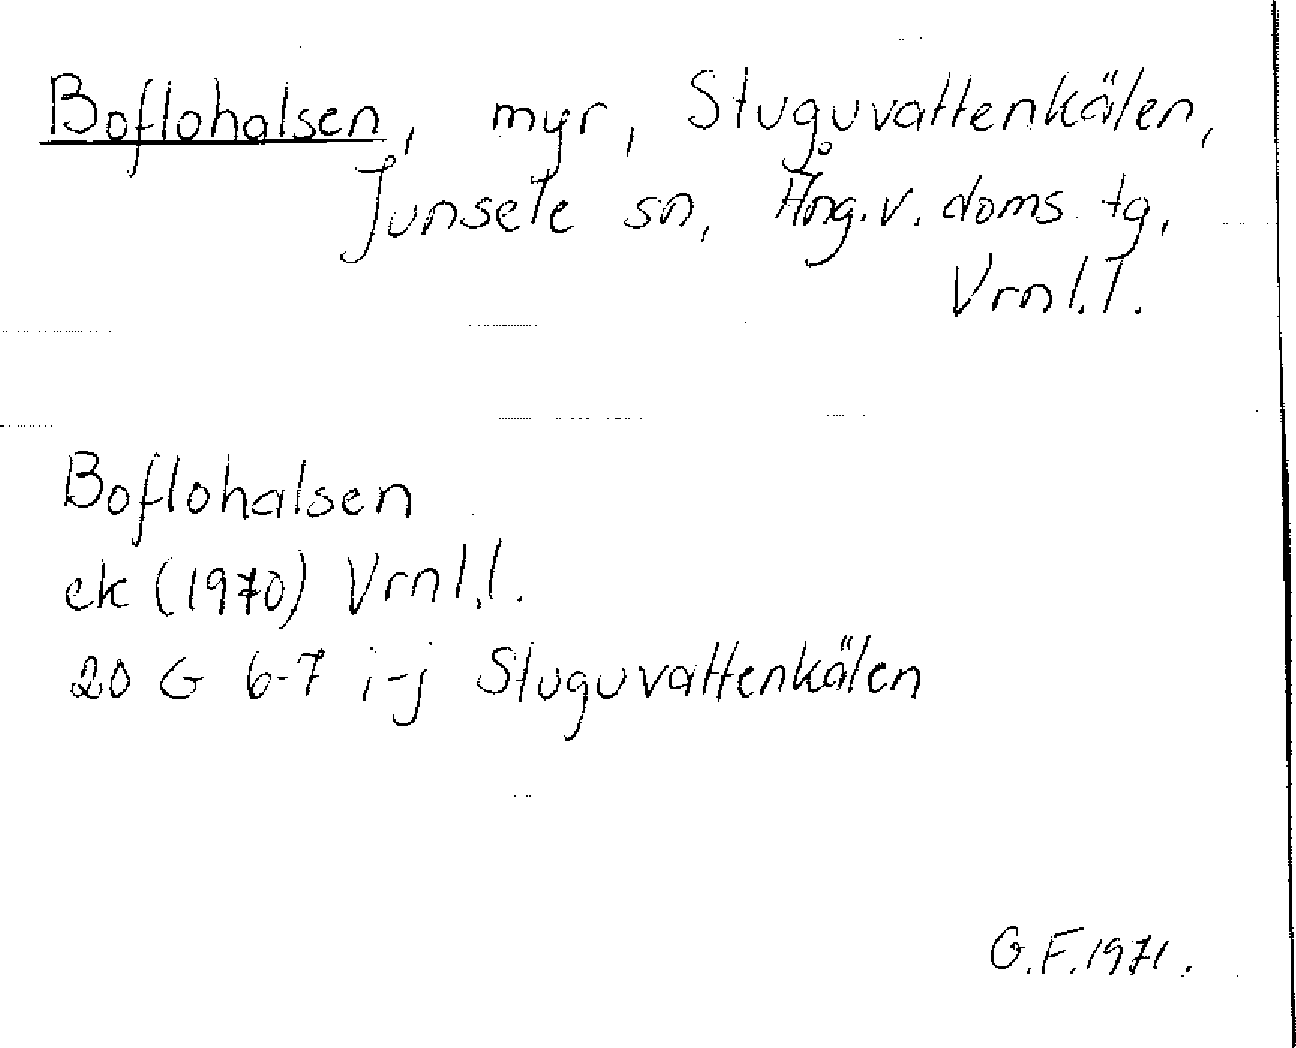 Boflohalsen, myr, Stuguvattenkälen,
Junsele sn, Ång.v. doms.tg,
Vrnl.l.
Boflohalsen
ek (1970) Vrnl.l.
20 G 6-7 i-j Stuguvattenkälen
G.F.1971.